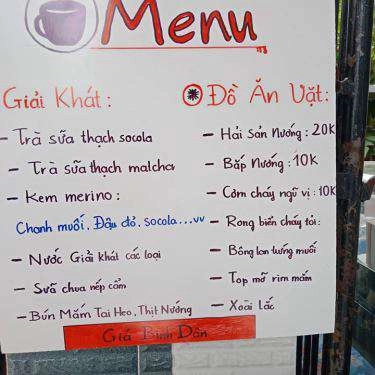 Menu
Giải Khát :
- Trà sữa thạch socola
- Trà sữa thạch matcha
- Kem merino :
Chanh muối, Đậu đỏ, socola...vv
- Nước Giải khát các loại
- Sữa chua nếp cẩm
- Bún Mắm Tai Heo, Thịt Nướng
Đồ Ăn Vặt :
- Hải Sản Nướng : 20K
- Bắp Nướng : 10K
- Cơm cháy ngũ vị : 10K
- Rong biển cháy tỏi :
- Bông lan trứng muối
- Tóp mỡ rim mắm
- Xoài Lắc
Giá Bình Dân